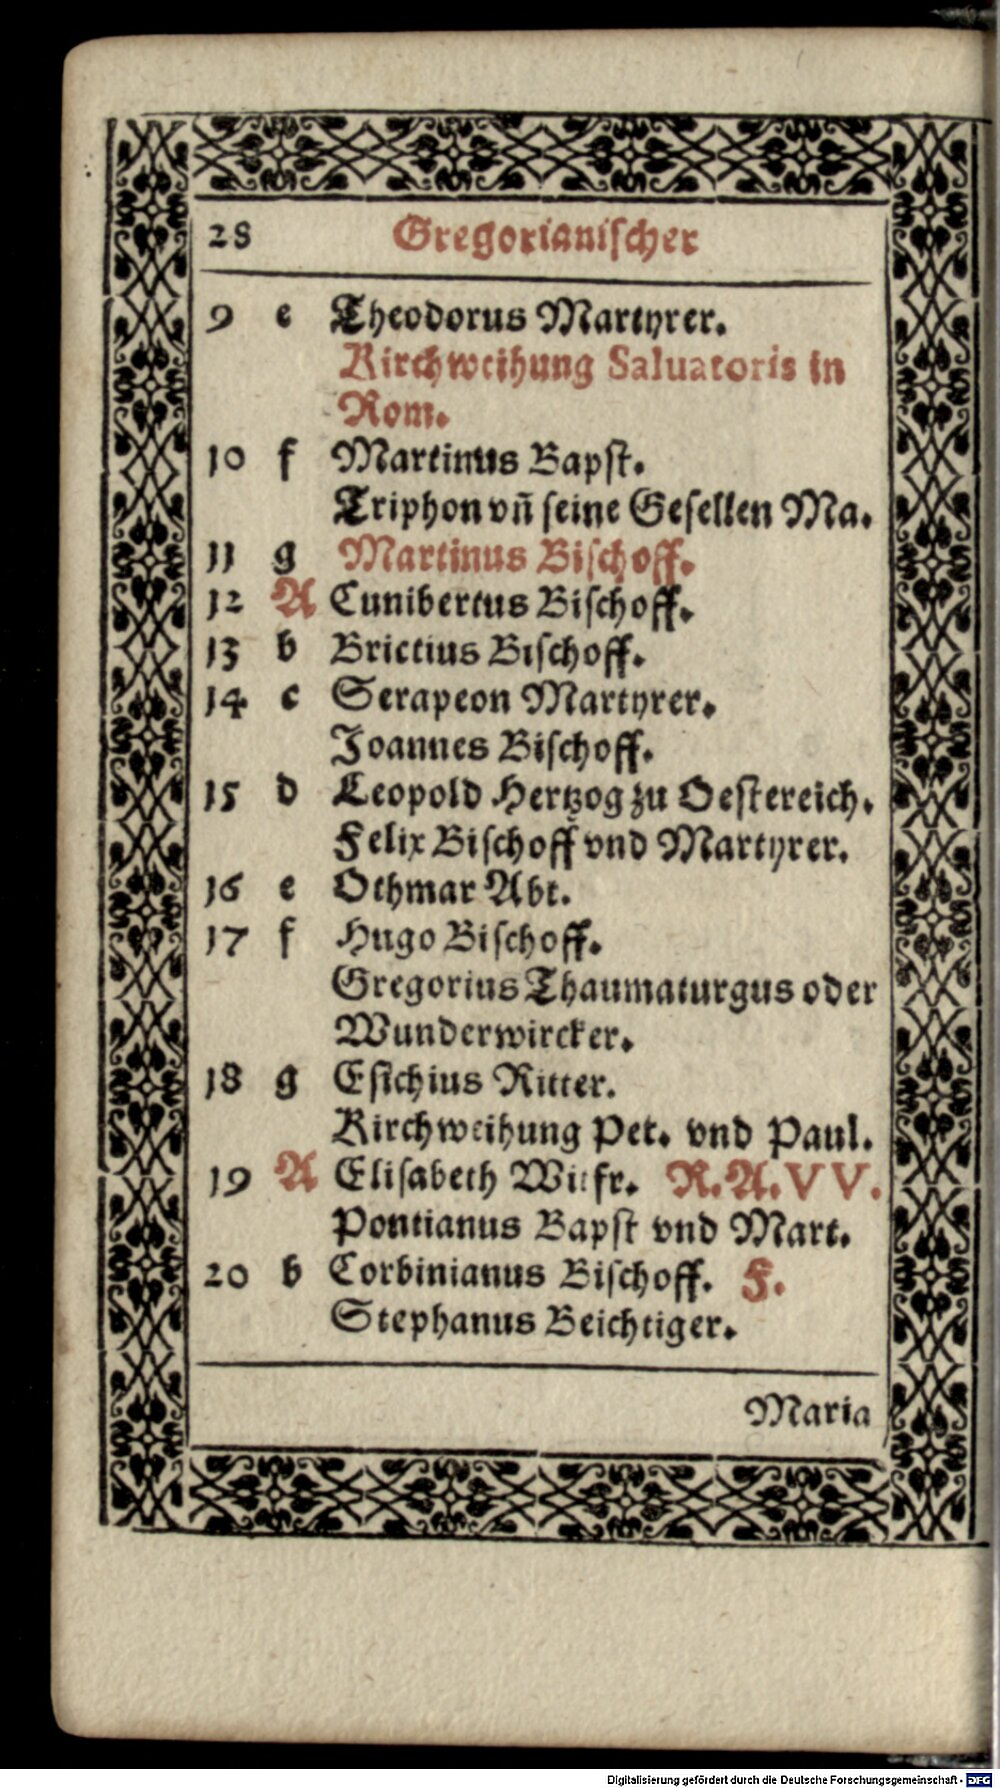 28 Gregorianischer
9 e Theodorus Martyrer.
Kirchweihung Saluatoris in
Rom.
10 f Martinus Bapst.
Triphon vñ seine Gesellen Ma.
11 g Martinus Bischoff.
12 A Cunibertus Bischoff.
13 b Brictius Bischoff.
14 c Serapeon Martyrer.
Joannes Bischoff.
15 d Leopold Hertzog zu Oestereich.
Felix Bischoff vnd Martyrer.
16 e Othmar Abt.
17 f Hugo Bischoff.
Gregorius Thaumaturgus oder
Wunderwircker.
18 g Esichius Ritter.
Kirchweihung Pet. vnd Paul.
19 A Elisabeth Witfr. R. A. VV.
Pontianus Bapst vnd Mart.
20 b Corbinianus Bischoff. F.
Stephanus Beichtiger.
Maria
Digitalisierung gefördert durch die Deutsche Forschungsgemeinschaft - DFG